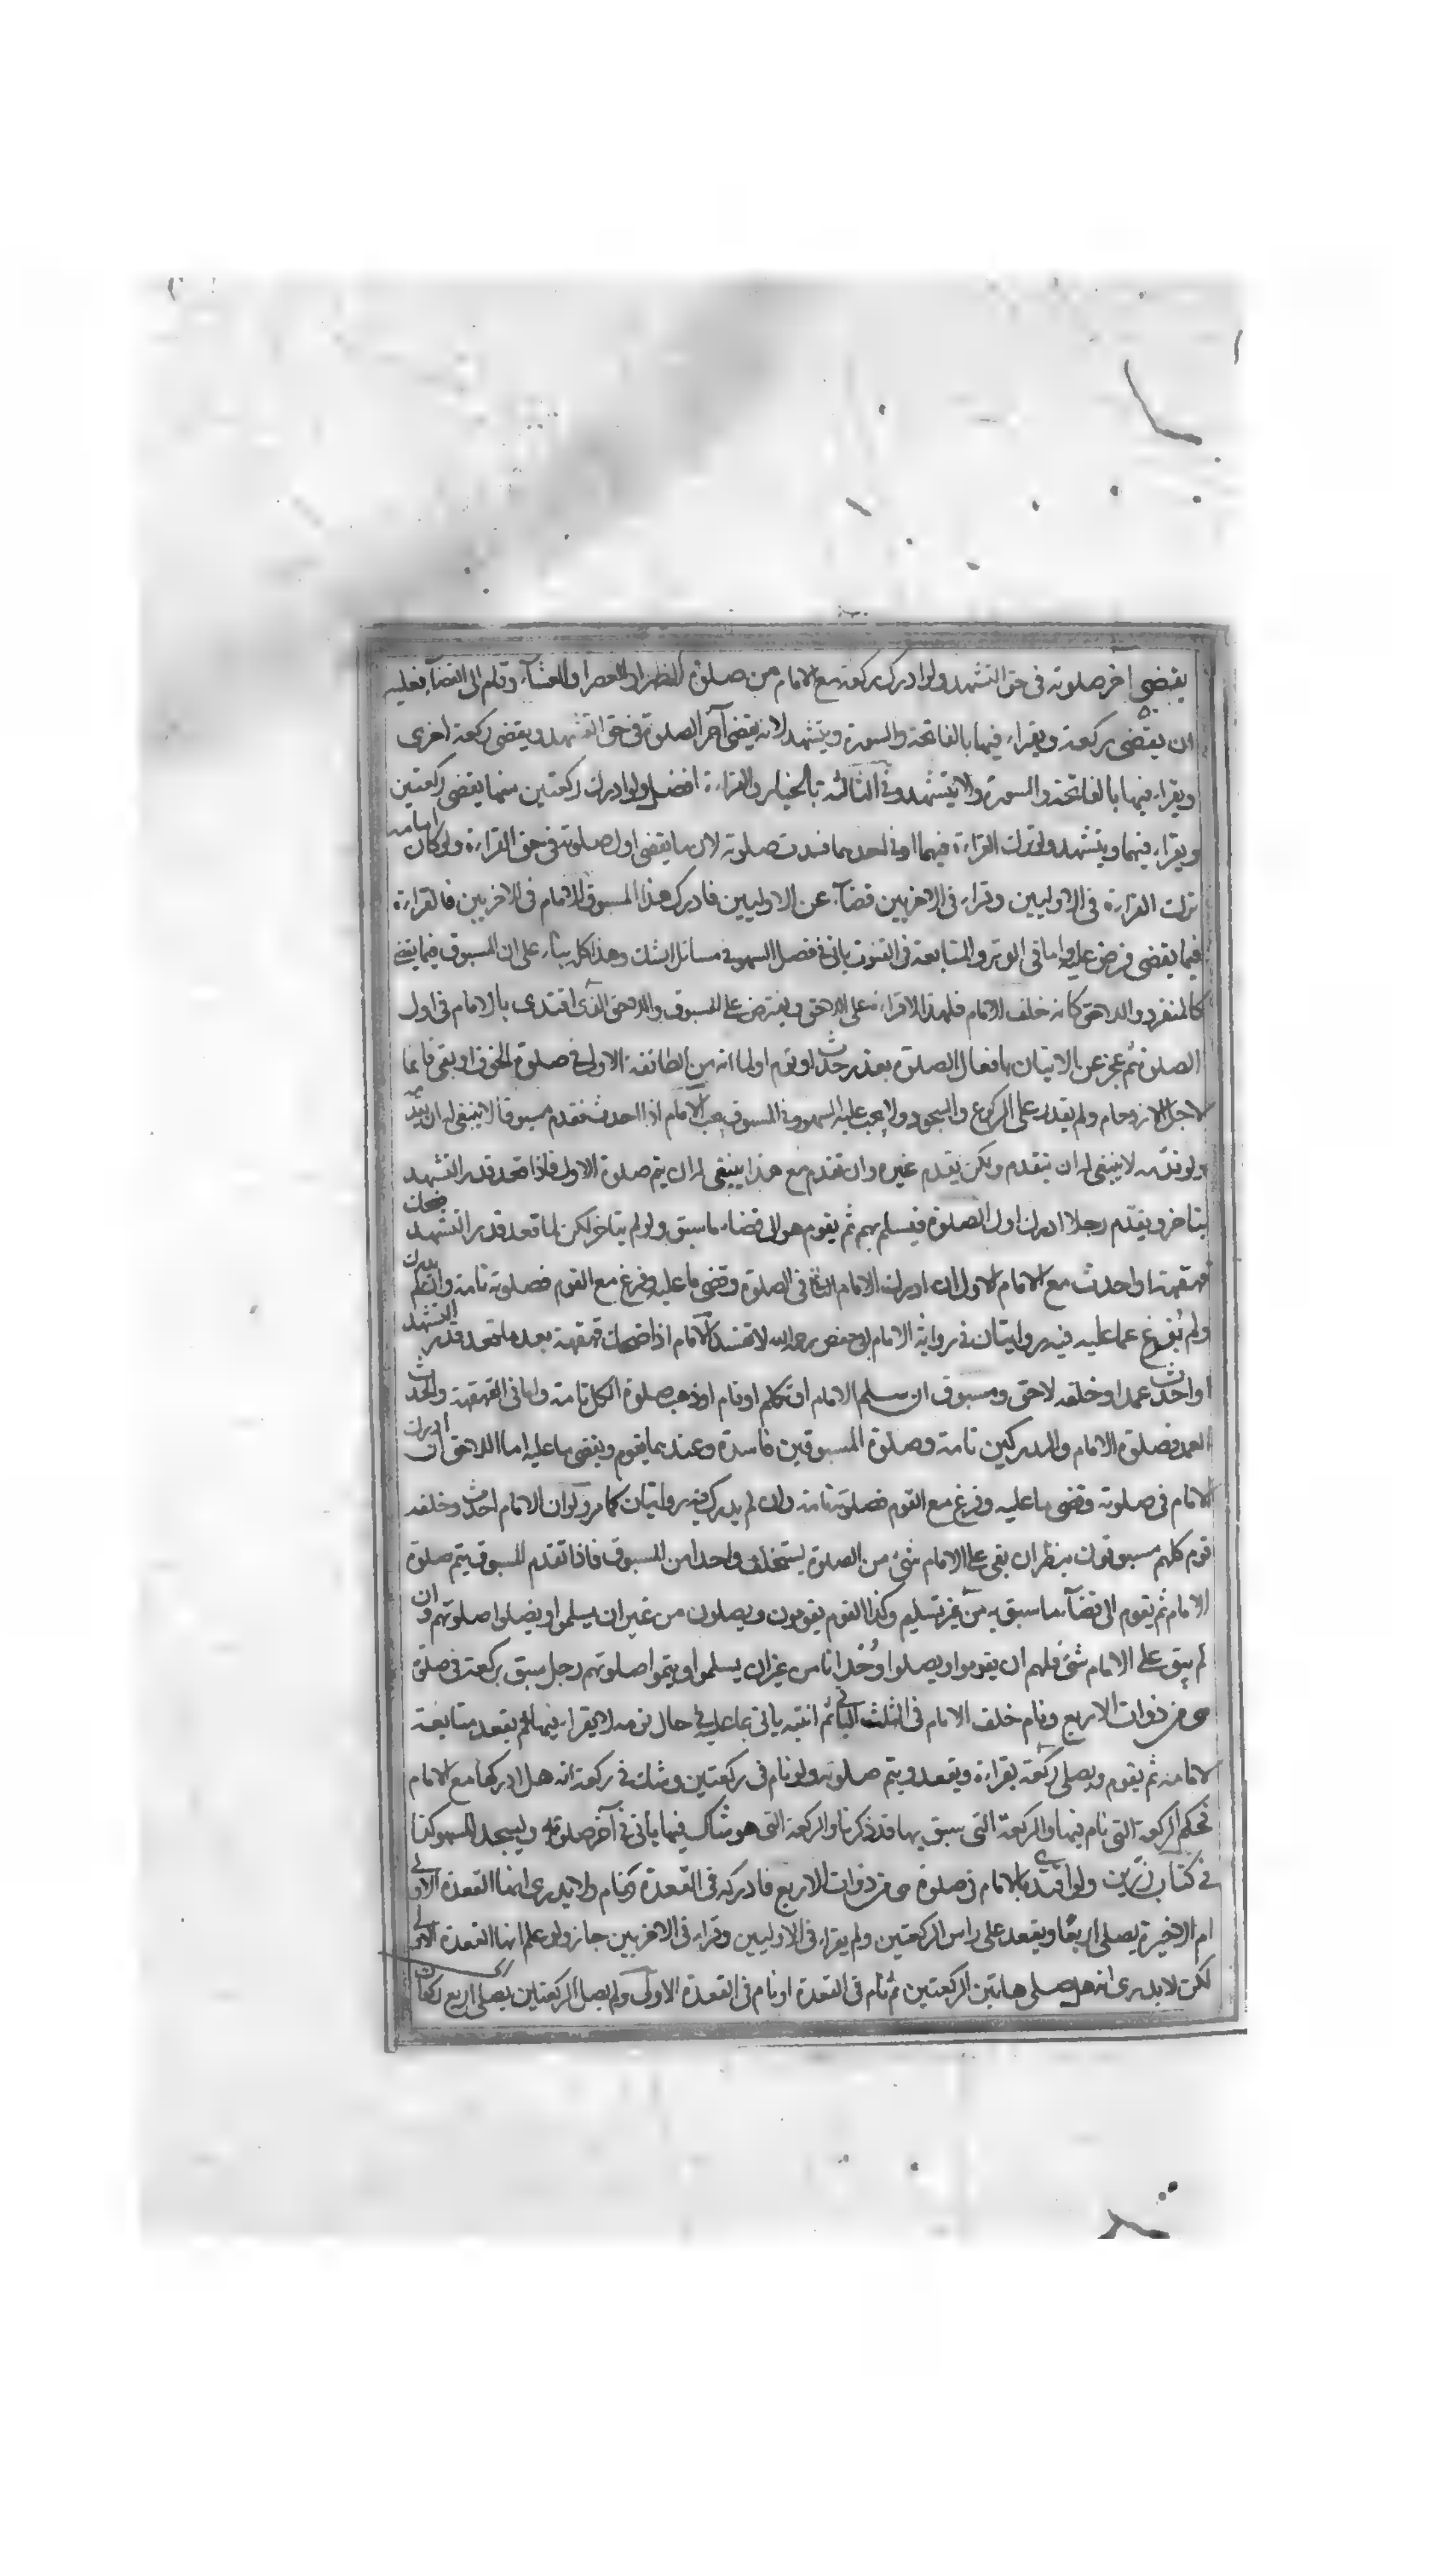 يقضي اخر صلوته في حق التشهد ولو ادرك ركعة مع الامام من صلوة الظهر او العصر او العشآء وقام الى القضآء فعليه
ان يقضي ركعة ويقراء فيها بالفاتحة والسورة ويتشهد لانه يقضي آخر الصلوة في حق التشهد ويقضي ركعة اخرى
ويقراء فيها بالفاتحة والسورة ولا يتشهد وفي الثالثة بالخيار والقراءة افضل ولو ادرك ركعتين منها يقضي ركعتين
ويقراء فيهما ويتشهد ولو ترك القراءة فيهما او في احديهما فسدت صلوته لان ما يقضي اول صلوته في حق القراءة ولو كان امامه
ترك القراءة في الاوليين وقراء في الاخريين قضآء عن الاوليين فادرك هذا المسبوق الامام في الاخريين فالقراءة
فيما يقضي فرض عليه واما في الوتر والمتابعة في القنوت ياتي في فصل السهو في مسائل الشك وهذا كله بناء على ان المسبوق فيما يقضي
كالمنفرد واللاحق كانه خلف الامام فلهذا لا قراءة على اللاحق ويفترض على المسبوق واللاحق الذي اقتدى بالامام في اول
الصلوة ثم عجز عن الاتيان بافعال الصلوة بعذر حدث او نوم او لما انه من الطائفة الاولى في صلوة الخوف او بقي قائما
لاجل الازدحام ولم يقدر على الركوع والسجود ولا يجب عليه السهو وفي المسبوق يجب الامام اذا احدث فقدم مسبوقا لا ينبغي له ان
ولو قدمه لا ينبغي له ان يتقدم ولكن يقدم غيره وان تقدم مع هذا ينبغي له ان يتم صلوة الاول فاذا قعد قدر التشهد
يتاخر ويقدم رجلا ادرك اول الصلوة فيسلم بهم ثم يقوم هو الى قضاء ما سبق ولو لم يتاخر لكن لما قعد قدر التشهد ضحك
قهقهة او احدث مع الامام الاول ان ادرك الامام الثاني في الصلوة وقضى ما عليه وفرغ مع القوم فصلوته تامة وان لم يدرك
ولم يفرغ عما عليه فيه روايتان في رواية الامام ابي حفص رحمه الله لا تفسد الامام اذا ضحك قهقهة بعد ما قعد قدر التشهد
او احدث عمدا وخلفه لاحق ومسبوق ان سلم الامام او تكلم او قام او ذهب صلوة الكل تامة واما في القهقهة والحدث
العمد فصلوة الامام والمدركين تامة وصلوة المسبوقين فاسدة وعندهما يقوم ويقضي ما عليه اما اللاحق ان ادرك
الامام في صلوته وقضى ما عليه وفرغ مع القوم فصلوته تامة وان لم يدرك فيه روايتان كما مر ولو ان الامام احدث وخلفه
قوم كلهم مسبوقون ينظر ان بقي على الامام شئ من الصلوة يستخلف واحدا من المسبوق فاذا تقدم المسبوق يتم صلوة
الامام ثم يقوم الى قضآء ما سبق به من غير تسليم وكذا القوم يقومون ويصلون من غير ان يسلموا ويصلوا صلوتهم وان
لم يبق على الامام شئ فلهم ان يقوموا ويصلوا وحدانا من غير ان يسلموا ويتموا صلوتهم رجل سبق بركعة في صلوة
هي من ذوات الاربع ونام خلف الامام في الثلث الباقي ثم انتبه ياتي بما عليه في حال نومه لا يقراء فيها ثم يقعد متابعة
لامامه ثم يقوم ويصلي ركعة بقراءة ويقعد ويتم صلوته ولو نام في ركعتين وشك في ركعة انه هل ادركها مع الامام
فحكم الركعة التي نام فيها والركعة التي سبق بها قد ذكرنا والركعة التي هو شاك فيها ياتي في آخر صلوته ويسجد للسهو كذا
في كتاب رزين ولو اقتدى بالامام في صلوة هي من ذوات الاربع فادركه في القعدة ونام ولا يدري انها القعدة الاولى
ام الاخيرة يصلي اربعا ويقعد على راس الركعتين ولم يقراء في الاوليين وقراء في الاخريين جاز ولو علم انها القعدة الاولى
لكن لا يدري انه هل صلى هاتين الركعتين ثم نام في القعدة او نام في القعدة الاولى ولم يصل الركعتين يصلي اربع ركعات